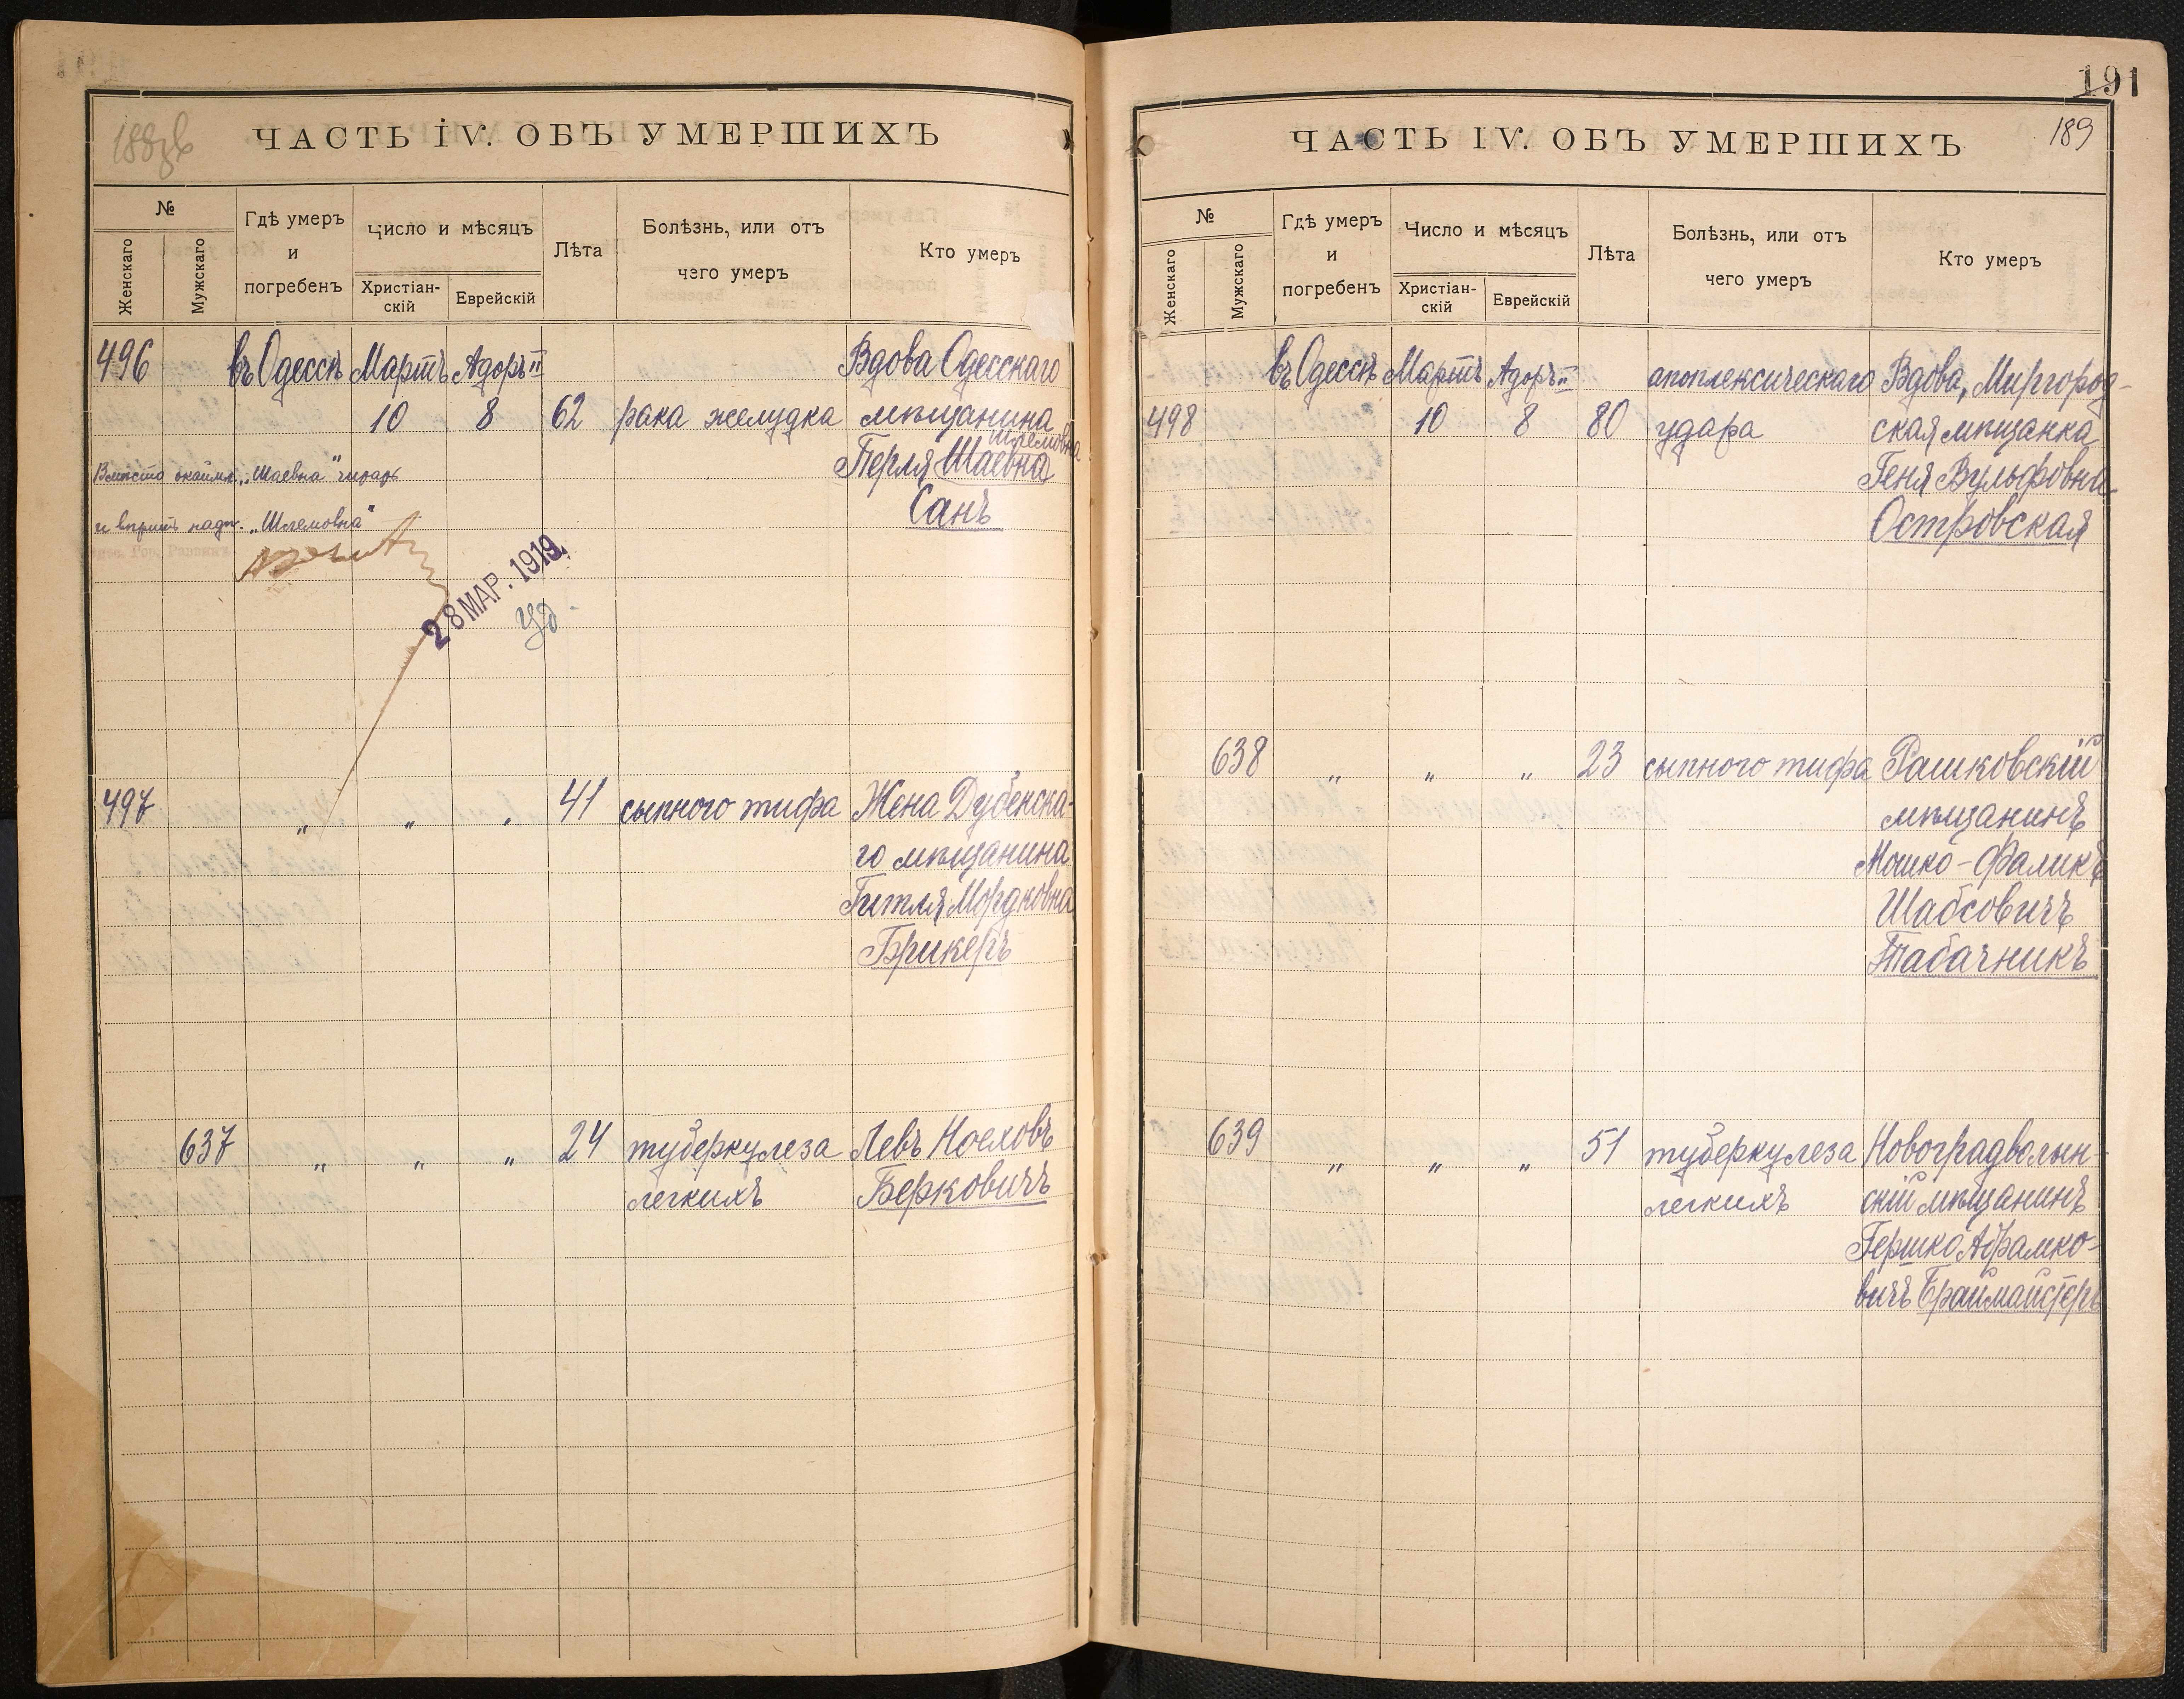 ЧАСТЬ IV. ОБЪ УМЕРШИХЪ
№
Женскаго
Мужскаго
Гдѣ умеръ
и
погребенъ
Число и мѣсяцъ
Христіан-
скій
Еврейскій
Лѣта
Болѣзнь, или отъ
чего умеръ
Кто умеръ
496 въ Одессѣ Мартъ Адоръ II Вдова Одесскаго
10 8 62 рака желудка мѣщанина
Шлемовна
Перля Шаевна
Санъ
Вмѣсто „Шаевна"
„Шлемовна"
28 МАР. 1919
497 " " " 41 сыпного тифа Жена Дубенска-
го мѣщанина
Гитля Мордковна
Брикеръ
637 " " " 24 туберкулеза Левъ Ноеховъ
легкихъ Берковичъ
191
ЧАСТЬ IV. ОБЪ УМЕРШИХЪ 189
№
Женскаго
Мужскаго
Гдѣ умеръ
и
погребенъ
Число и мѣсяцъ
Христіан-
скій
Еврейскій
Лѣта
Болѣзнь, или отъ
чего умеръ
Кто умеръ
въ Одессѣ Мартъ Адоръ II апоплексическаго Вдова, Миргород-
498 10 8 80 удара ская мѣщанка
Геня Вульфовна
Островская
638 " " " 23 сыпного тифа Рашковскій
мѣщанинъ
Мошко-Фаликъ
Шабсовичъ
Табачникъ
639 " " " 51 туберкулеза Новоградволын-
легкихъ скій мѣщанинъ
Гершко Абрамко-
вичъ Браймайстеръ